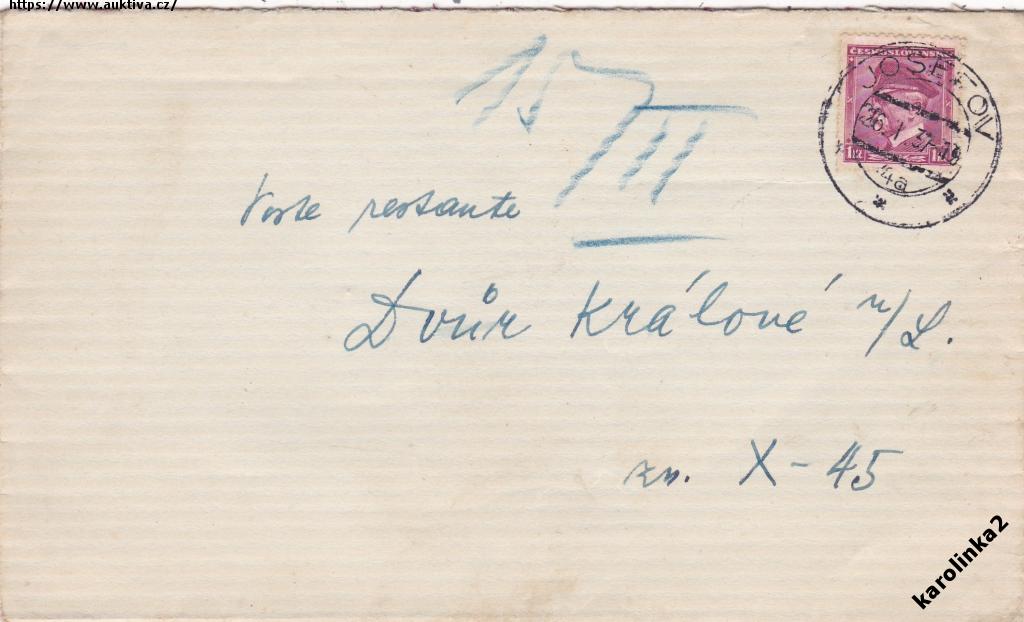 https://www.auktiva.cz/
15
III
ČESKOSLOVENSKO
1 Kč
JOSEFOV
26. X. 37-18
4a
Poste restante
Dvůr Králové n/L.
zn. X-45
karolinka2